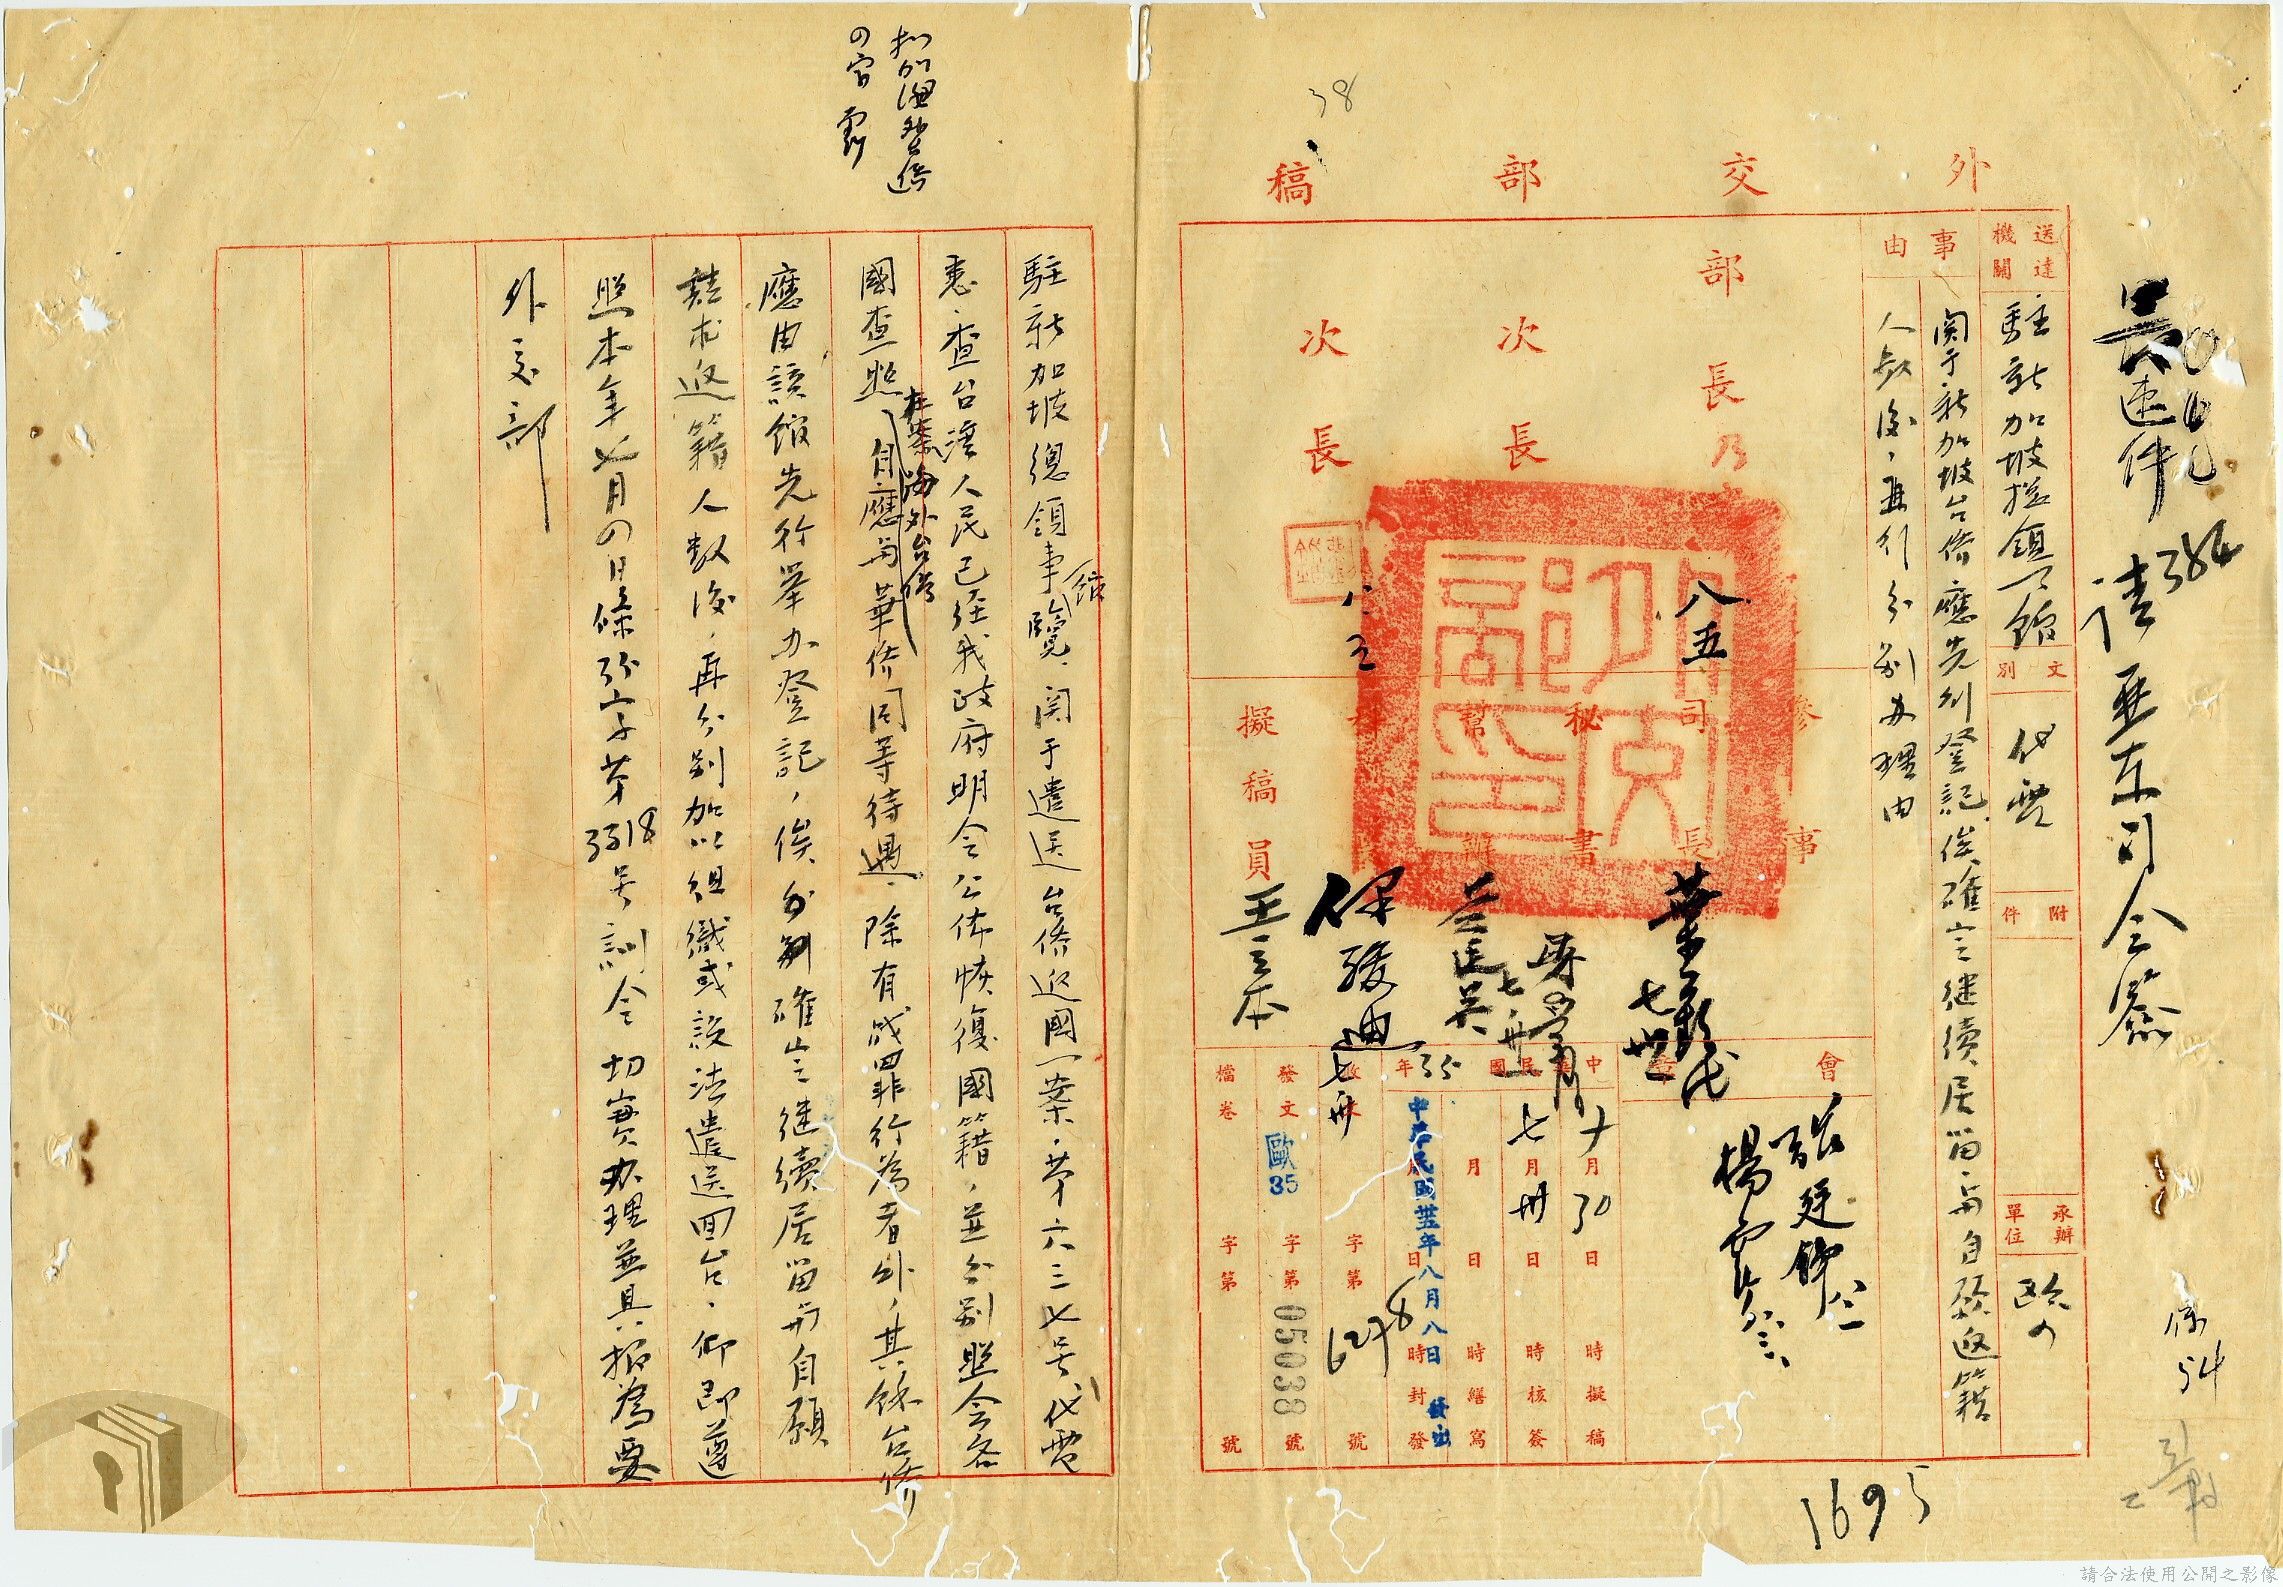 38
外交部稿
最速件
請亞東司會簽
384
送達機關
駐新加坡總領事館
文別
代電
附件
承辦單位
歐
事由
關于新加坡台僑應先行登記俟確定繼續居留與自願返籍
人數後，再行分別辦理由
部長
次長
次長
八五
參事
司長
秘書
幫辦
科長
擬稿員
王
保駿迪
七卅
會
張廷錚
楊雲竹
中華民國35年
七月30日時擬稿
七月卅日時核簽
月日時繕寫
月日時封發
中華民國卅五年八月八日發出
收文字第6278號
發文歐35字第05038號
檔卷字第號
1695
54
駐新加坡總領事館覽：關于遣送台僑返國一案，第六三七號代電
悉。查台灣人民已經我政府明令公佈恢復國籍，並分別照會各
國查照，在案海外台僑自應與華僑同等待遇。除有戰罪行為者外，其餘台僑
應由該館先行舉辦登記，俟分別確定繼續居留與自願
請求返籍人數後，再分別加以組織或設法遣送回台。仰即遵
照本年七月四日條35字第3318號訓令切實辦理並具報為要
外交部
請合法使用公開之影像